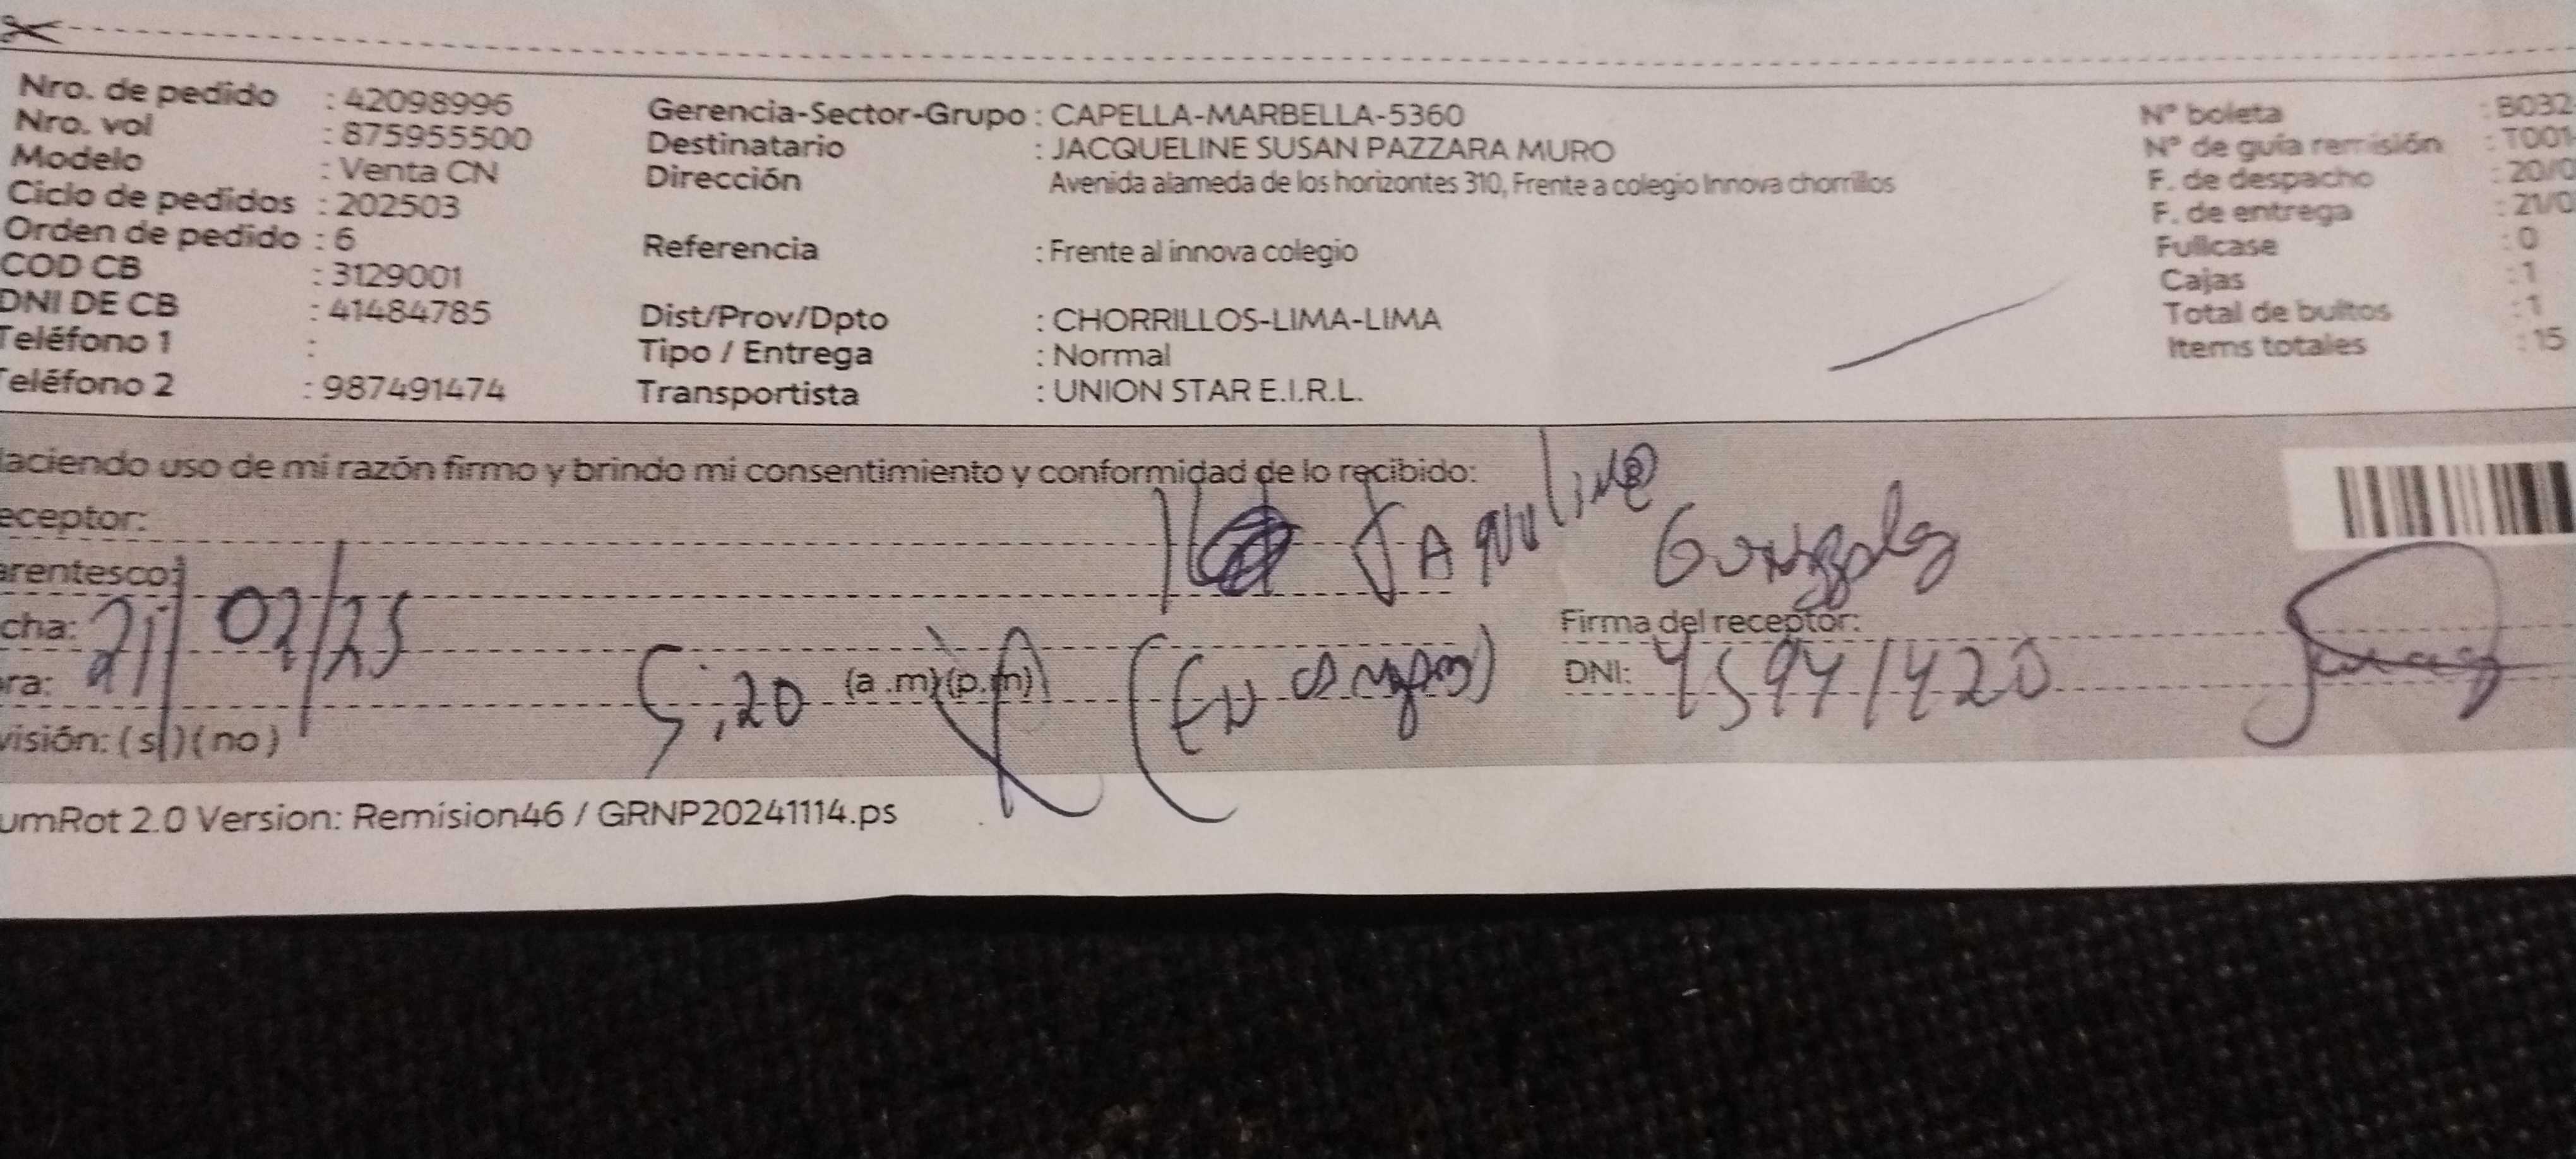 Nro. de pedido : 42098996
Nro. vol : 875955500
Modelo : Venta CN
Ciclo de pedidos : 202503
Orden de pedido : 6
COD CB : 3129001
DNI DE CB : 41484785
Teléfono 1 :
Teléfono 2 : 987491474
Gerencia-Sector-Grupo : CAPELLA-MARBELLA-5360
Destinatario : JACQUELINE SUSAN PAZZARA MURO
Dirección Avenida alameda de los horizontes 310, Frente a colegio Innova chorrillos
Referencia : Frente al innova colegio
Dist/Prov/Dpto : CHORRILLOS-LIMA-LIMA
Tipo / Entrega : Normal
Transportista : UNION STAR E.I.R.L.
Nº boleta : B032
Nº de guía remisión : T001
F. de despacho : 20/0
F. de entrega : 21/0
Fullcase : 0
Cajas : 1
Total de bultos : 1
Items totales : 15
Haciendo uso de mi razón firmo y brindo mi consentimiento y conformidad de lo recibido:
eceptor: Jaquline
arentesco:
cha: 21/02/25
ra: 5:20 (a.m)(p.m)
visión: (si)(no)
Firma del receptor:
DNI: 45941420
umRot 2.0 Version: Remision46 / GRNP20241114.ps